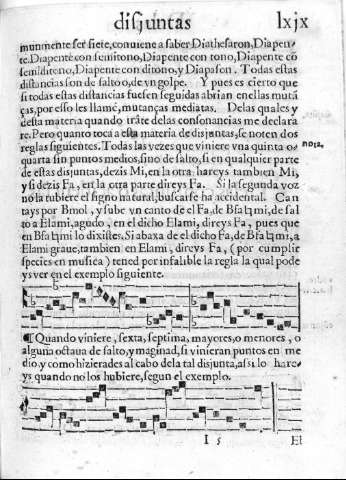 disjuntas lxjx
munmente ser siete, conuiene a saber Diathesaron, Diapen-
te. Diapente con semitono, Diapente con tono, Diapente cō
semiditono, Diapente con ditono, y Diapason. Todas estas
distancias son de salto, o de vn golpe. Y pues es cierto que
si todas estas distancias fuessen seguidas abrian en ellas mutā
ças, por esso les llamé, mutanças mediatas. Delas quales y
desta materia quando trāte delas consonancias me declara
re. Pero quanto toca a esta materia de disjuntas, se noten dos
reglas siguientes. Todas las vezes que viniere vna quinta o
quarta sin puntos medios, sino de salto, si en qualquier parte
de estas disjuntas, dezis Mi, en la otra hareys tambien Mi,
y si dezis Fa, en la otra parte direys Fa. Si la segunda voz
no la tubiere el signo natural, buscarse ha accidental. Can
tays por Bmol, y sube vn canto de el Fa, de Bfa♮mi, de sal
to a Elami, agudo, en el dicho Elami, direys Fa, pues que
en Bfa♮mi lo dixistes. Si abaxa de el dicho Fa, de Bfa♮mi, a
Elami graue, tambien en Elami, direys Fa, (por cumplir
species en musica) tened por infalible la regla la qual pode
ys ver en el exemplo siguiente.
¶ Quando viniere, sexta, septima, mayores, o menores, o
alguna octaua de salto, y maginad, si vinieran puntos en me
dio, y como hizierades al cabo dela tal disjunta, assi lo hare
ys quando no los hubiere, segun el exemplo.
I 5 El